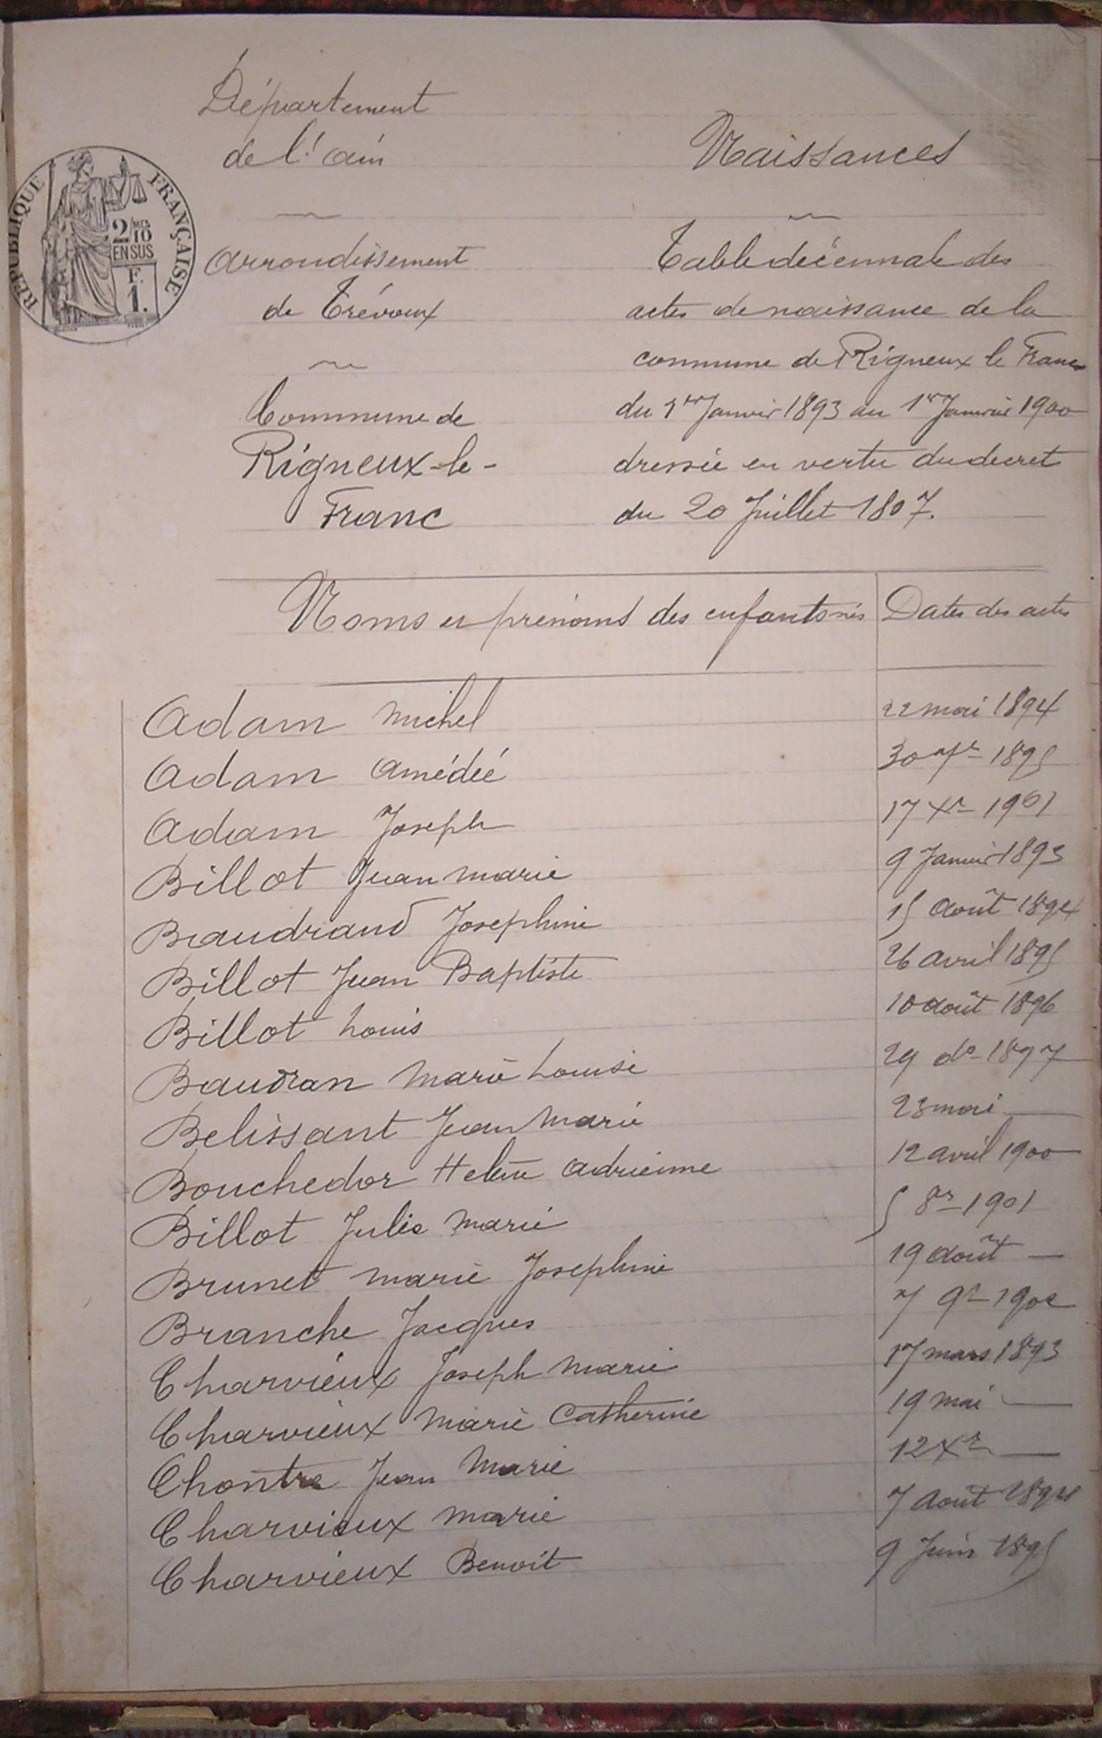 Département
de l'ain
RÉPUBLIQUE FRANÇAISE
2/10
EN SUS
F.
1.
arrondissement
de Trévoux
Commune de
Rigneux-le-
Franc
Naissances
Table décennale des
actes de naissance de la
commune de Rigneux le Franc
du 1er Janvier 1893 au 1er Janvier 1900
dressée en vertu du decret
du 20 Juillet 1807.
Noms et prénoms des enfants nés Dates des actes
Adam Michel 22 mai 1894
Adam Amédée 30 7re 1895
Adam Joseph 17 Xre 1901
Billot Jean Marie 9 Janvier 1893
Beaudrand Josephine 15 août 1894
Billot Jean Baptiste 26 avril 1895
Billot Louis 10 août 1896
Baudran Marie Louise 29 do 1897
Belissant Jean Marie 23 mai —
Bouchedor Helène Adrienne 12 avril 1900
Billot Julie Marie 5 8re 1901
Brunet Marie Josephine 19 août —
Branche Jacques 7 9re 1902
Charvieux Joseph Marie 17 mars 1893
Charvieux Marie Catherine 19 mai —
Chontre Jean Marie 12 Xre —
Charvieux Marie 7 Août 1894
Charvieux Benoit 9 Juin 1895